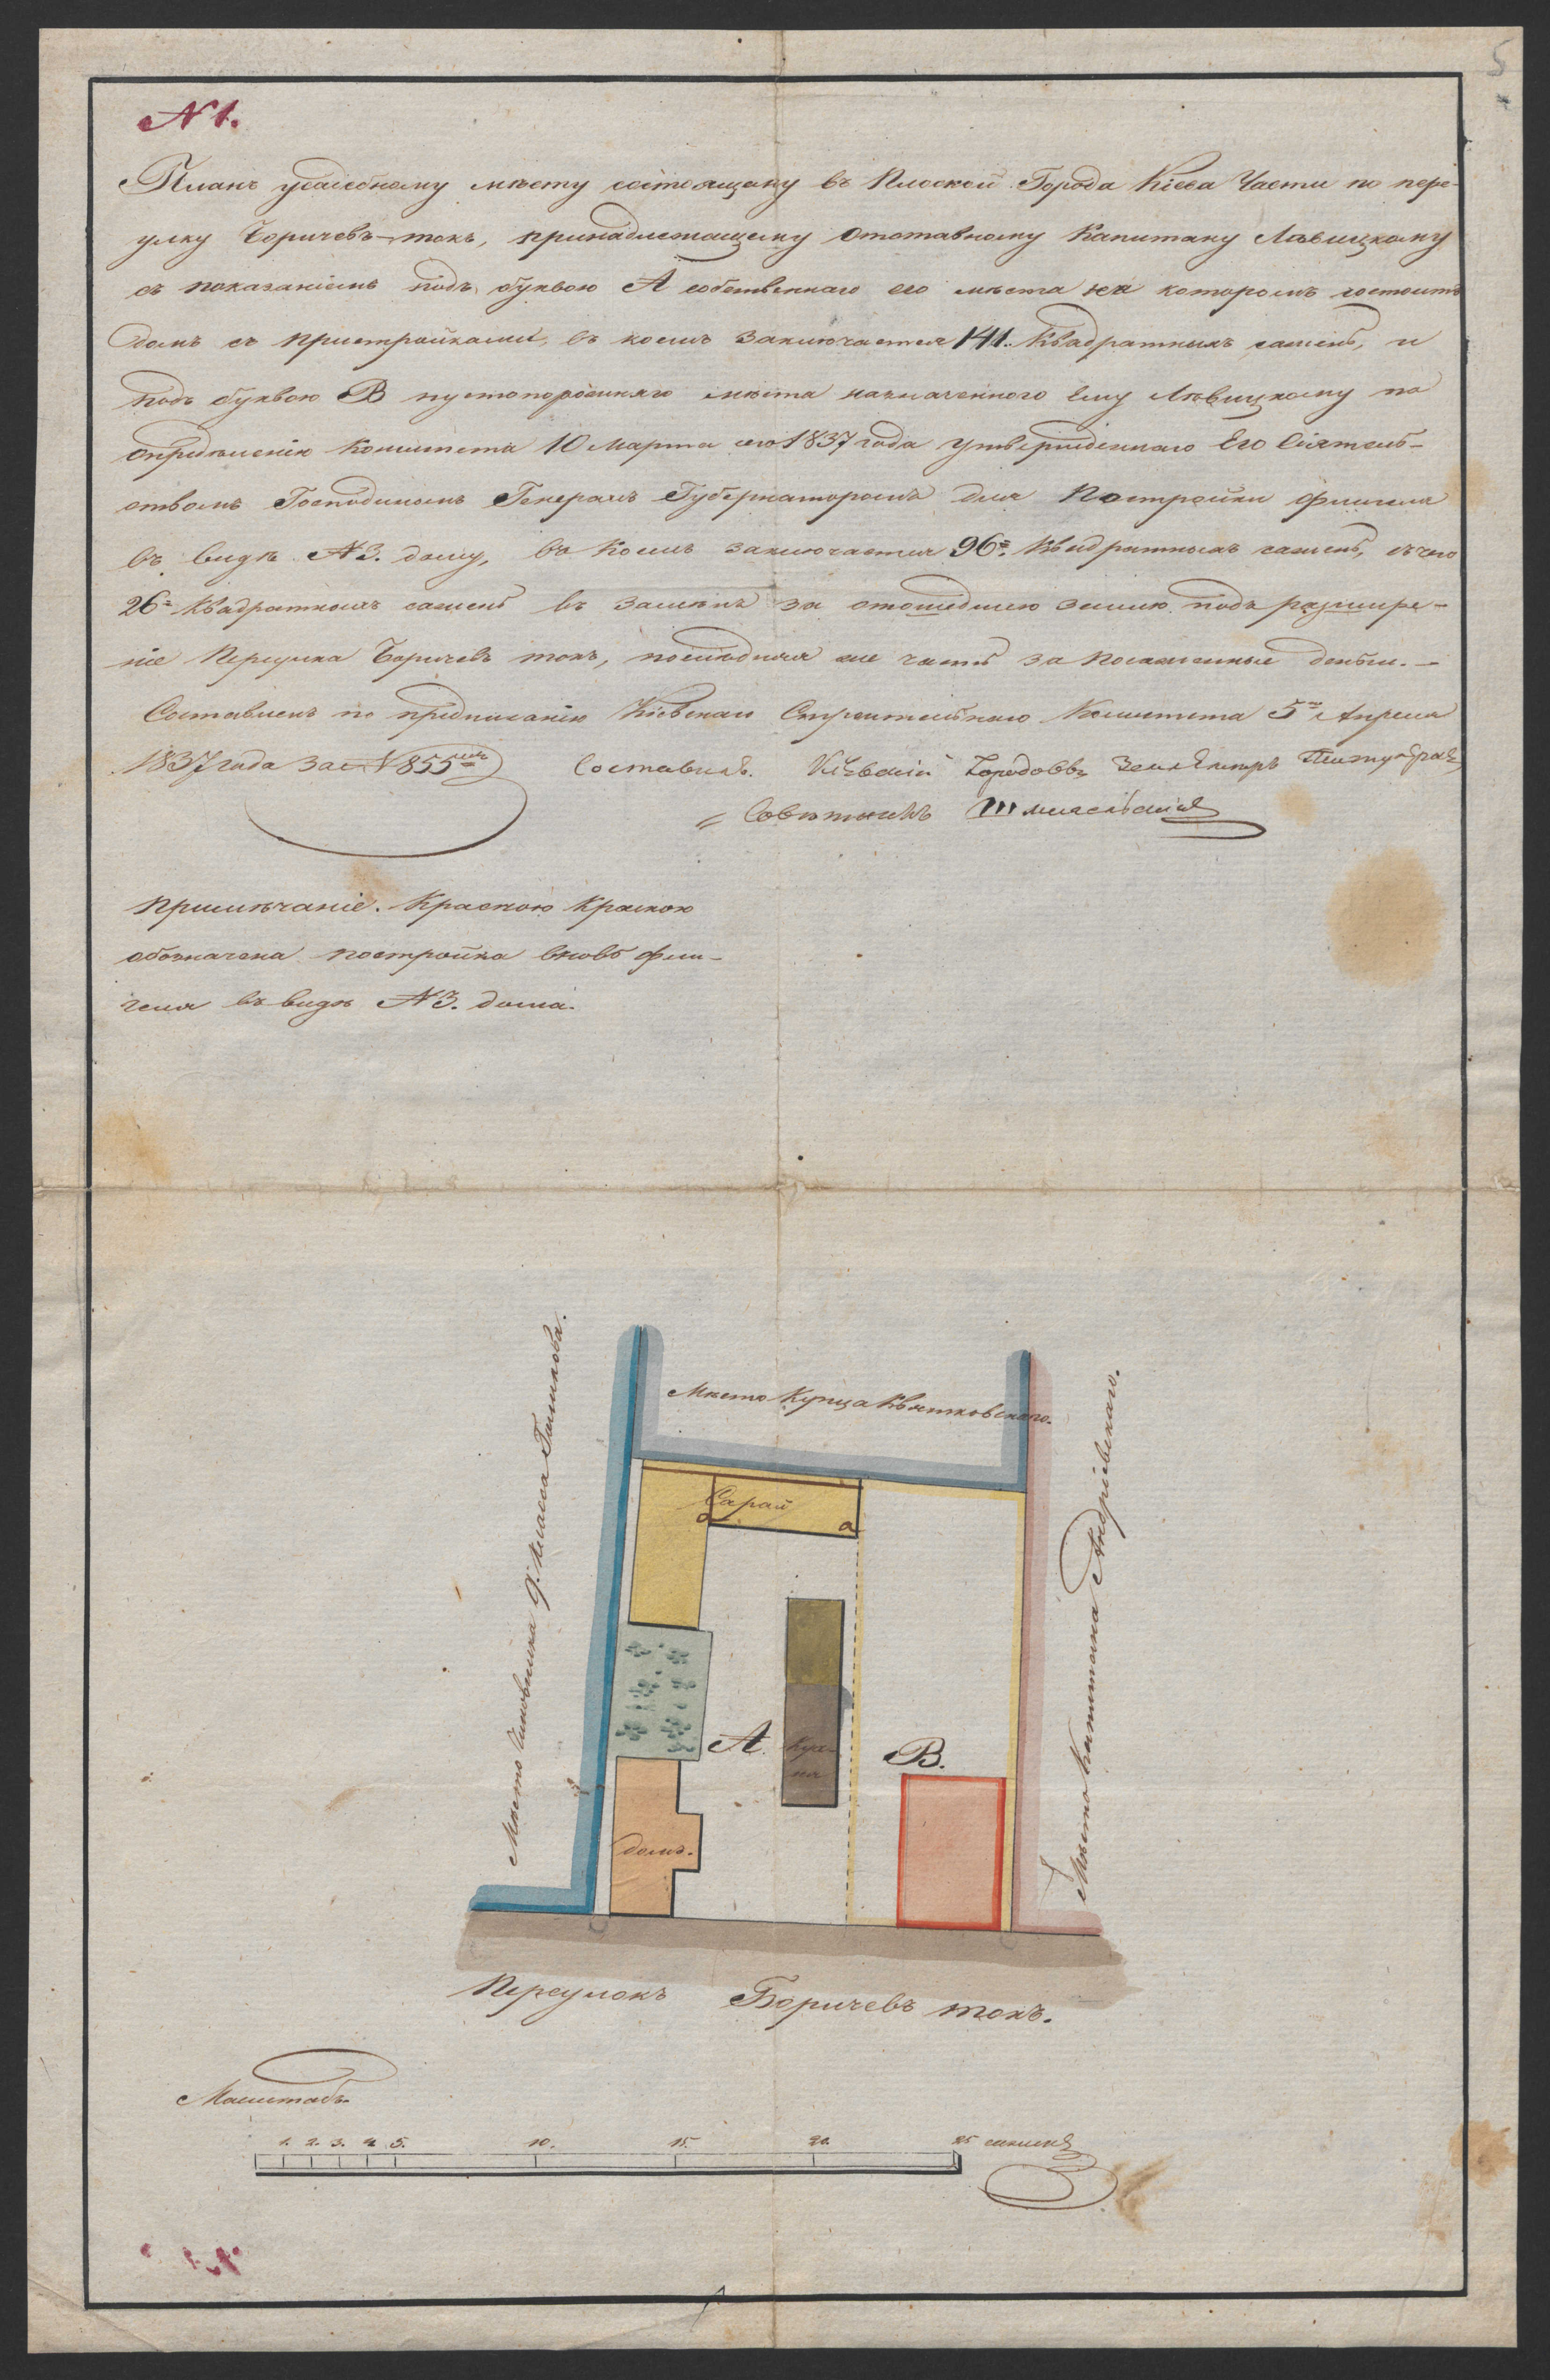 5
N 1.
Планъ усадебному мѣсту состоящему въ Плоской Города Кіева Части по пере-
улку Боричевъ-токъ, принадлежащему Отставному Капитану Лѣвицкому
съ показаніемъ подъ буквою А собственнаго его мѣста на которомъ состоитъ
домъ съ пристройками, въ коемъ заключается 141. Квадратныхъ сажень, и
подъ буквою В пустопорожняго мѣста назначенного Ему Лѣвицкому по
опредѣленію Комитета 10 Марта сего 1837 года утвержденнаго Его Сіятель-
ствомъ Господиномъ Генералъ Губернаторомъ для Постройки флигеля
въ видѣ N 3. дому, въ коемъ заключается 96. Квадратныхъ сажень, съ чего
26 Квадратныхъ сажень въ замѣнъ за отошедшею землю подъ разшире-
ніе Переулка Боричевъ токъ, послѣдняя же часть за положенные деньги.—
Составленъ по предписанію Кіевскаго Строительнаго Комитета 5 Апреля
1837 года за N 855
Составилъ. Кіевскій Городовой Землемѣръ
Совѣтникъ
Примѣчаніе. Красною Краскою
обозначена постройка вновь фли-
геля въ видѣ N 3. дома.
Мѣсто Купца Квятковскаго.
Мѣсто Чиновника 9. Класса
Мѣсто Капитана Андріевскаго.
Сарай
А.
Кух-
ня
В.
домъ.
Переулокъ Боричевъ токъ.
Масштабъ
1. 2. 3. 4. 5. 10. 15. 20. 25 сажень